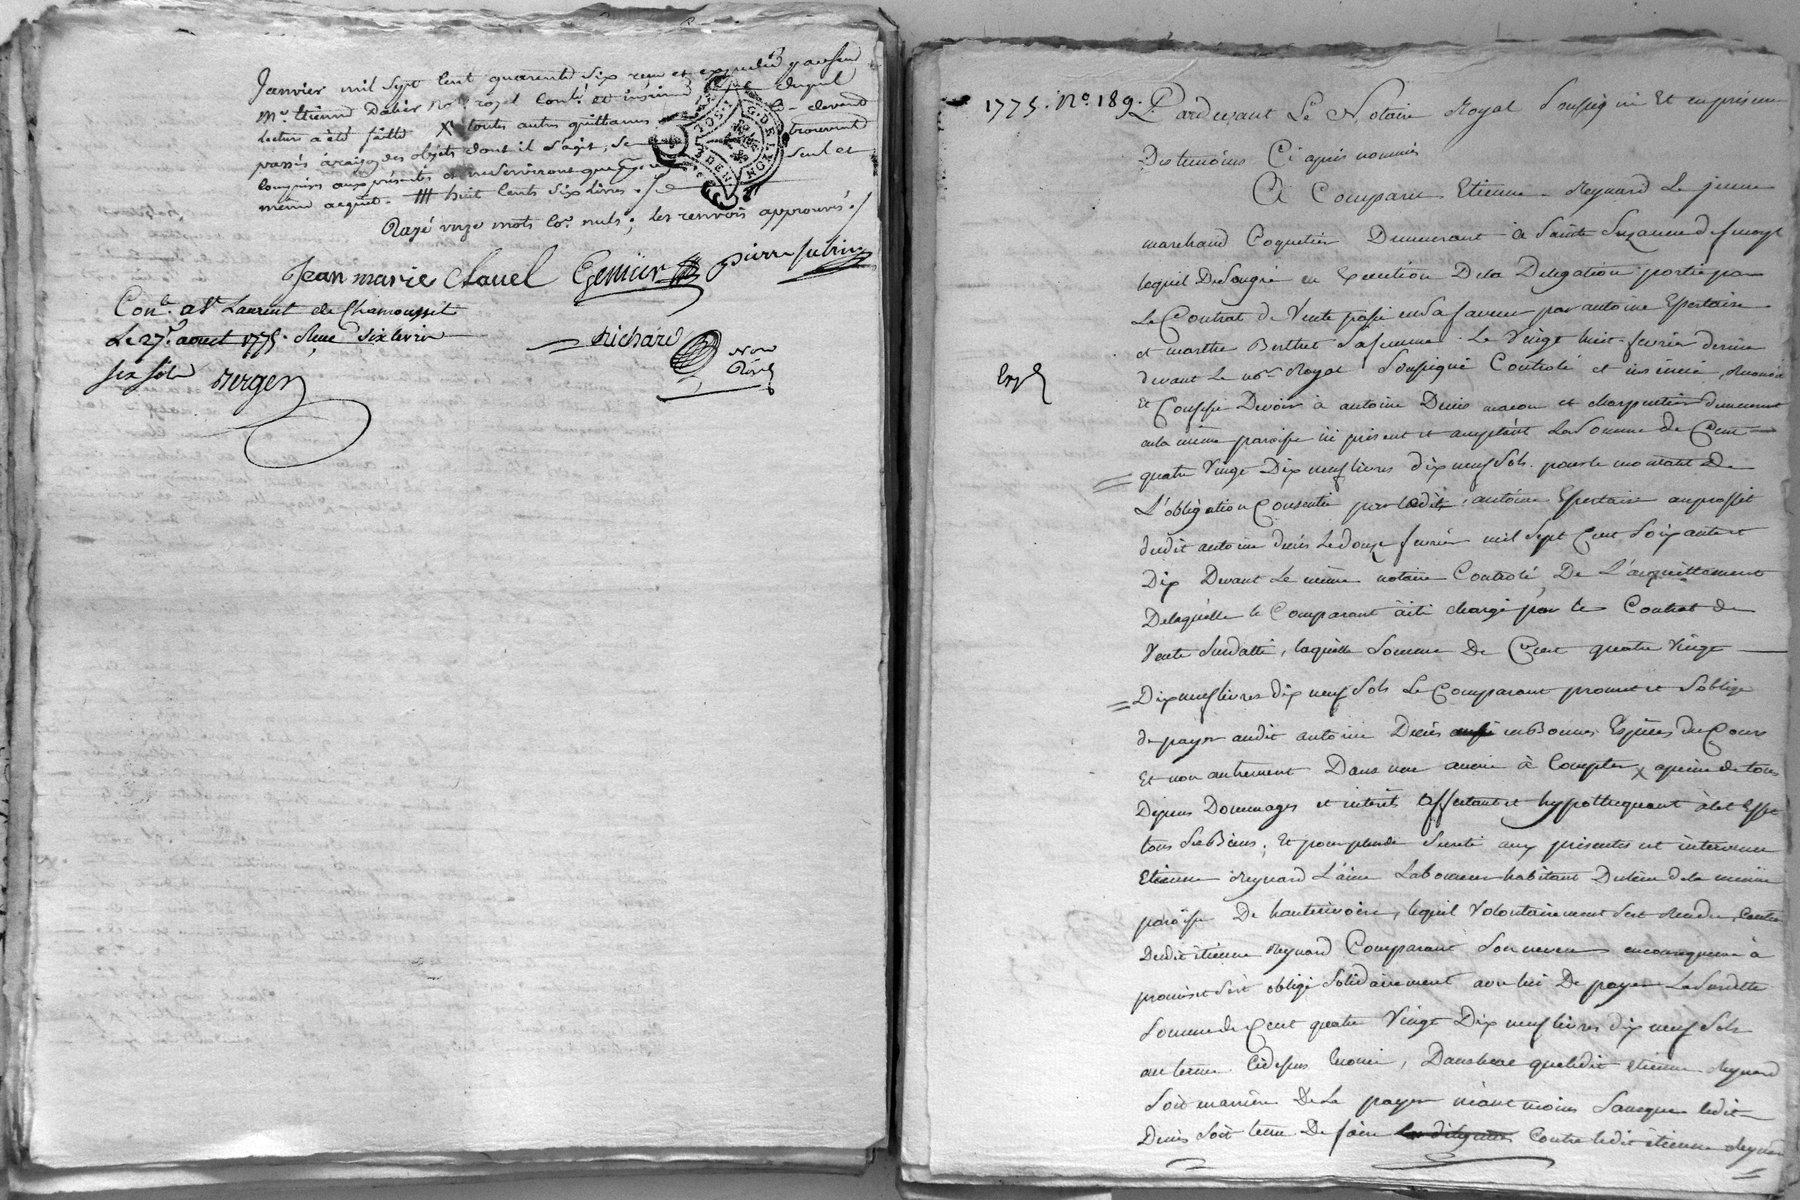 Janvier mil sept cent quarante six reçu et expedié par feu
Me. Etienne Dalier Nore. royal Conlé. et insinué duquel
lecture a été faitte X toutes autres quittances ci-devant
passés à raison des objets dont il s'agit, se trouvent
Comprises aux présentes et ne serviront que seul et
même acquit. ### huit Cents six livres ./
Rayé onze mots Co. nuls; les renvois approuvés ./
Jean marie Clavel Genier pierre subrin
Conle. a St. Laurent de Chamousset
Le 27e. aoust 1775. Reçu six livres
six sols Berger
Richard
Nore
Royal
1775. No. 189. Pardevant Le Notaire Royal Soussigné Et en présence
Des temoins Ci après nommés
A Comparu Etienne Reynard Le jeune
marchand Coquetier Demeurant a Sainte Suzanne
lequel De Son gré en Execution De la Delegation portée par
Le Contrat de Vente passé en Sa faveur par antoine Epertaire
et marthe Berthet Sa femme Le Vingt huit fevrier dernier
devant Le nore. Royal Soussigné Controlé et insinué,
Et Confesse Devoir à antoine Denis macon et charpentier demeurant
en la même paroisse ici présent et acceptant La Somme de Cent
quatre Vingt Dix neuf livres dix neuf Sols pour le montant De
L'obligation Consentie par ledit antoine Epertaire au proffit
dudit antoine denis Le douze fevrier mil Sept Cent Soixante et
Dix Devant Le même notaire Controlé, De L'acquittement
De laquelle le Comparant a été chargé par le Contrat de
Vente Susdatté, laquelle Somme De Cent quatre Vingt
Dix neuf livres dix neuf Sols Le Comparant promet et s'oblige
de payer audit antoine Denis en Bonnes Espèces du Cours
Et non autrement Dans une année à Compter X a peine de tous
Depens Dommages et interêts affectant et hypothequant à cet Effet
tous Ses Biens; Et pour plus de Sureté aux présentes est intervenu
Etienne Reynard L'ainé Laboureur habitant Du lieu de la même
paroisse De hauterivoire, lequel Volontairement S'est Rendu Caution
Dudit étienne Reynard Comparant Son neveu en conséquence à
promis et S'est obligé Solidairement avec lui De payer La Susditte
Somme de Cent quatre Vingt Dix neuf livres dix neuf Sols
au terme Cidessus Enoncé, Dans le cas que ledit étienne Reynard
Soit en arrière De La payer néantmoins Sans que ledit
Denis Soit tenu De faire les diligences Contre ledit étienne Reynard
Exp